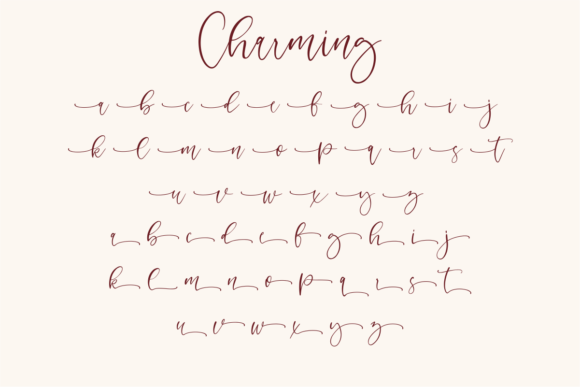 Charming
a b c d e f g h i j
k l m n o p q r s t
u v w x y z
a b c d e f g h i j
k l m n o p q r s t
u v w x y z